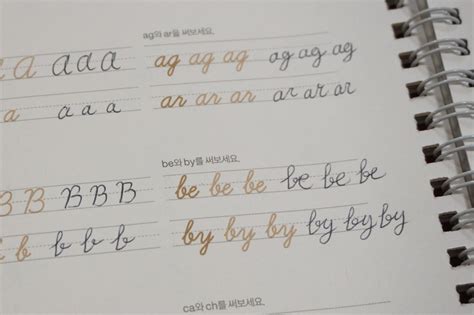 ag와 ar를 써보세요.
a a a a ag ag ag ag ag ag
a a a a ar ar ar ar ar ar
be와 by를 써보세요.
B B B B B be be be be be be
b b b b by by by by by by
ca와 ch를 써보세요.